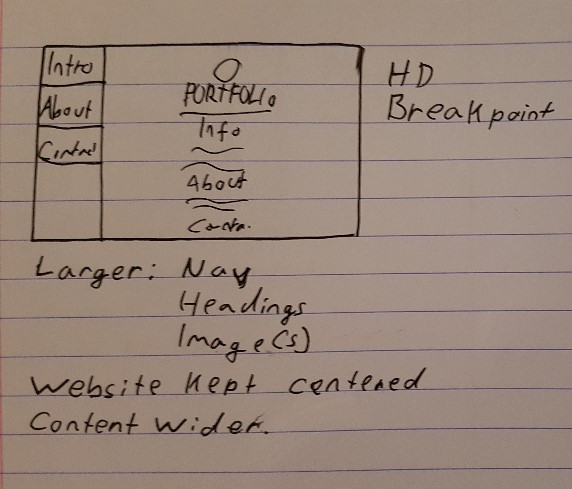 Intro
About
Contact
PORTFOLIO
Info
About
HD
Breakpoint
Larger: Nav
Headings
Image(s)
Website Kept centered
Content wider.